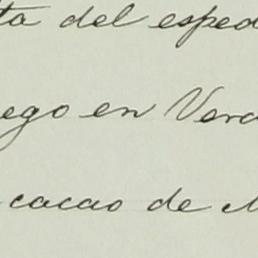 ta del esped
ego en Vera
cacao de M